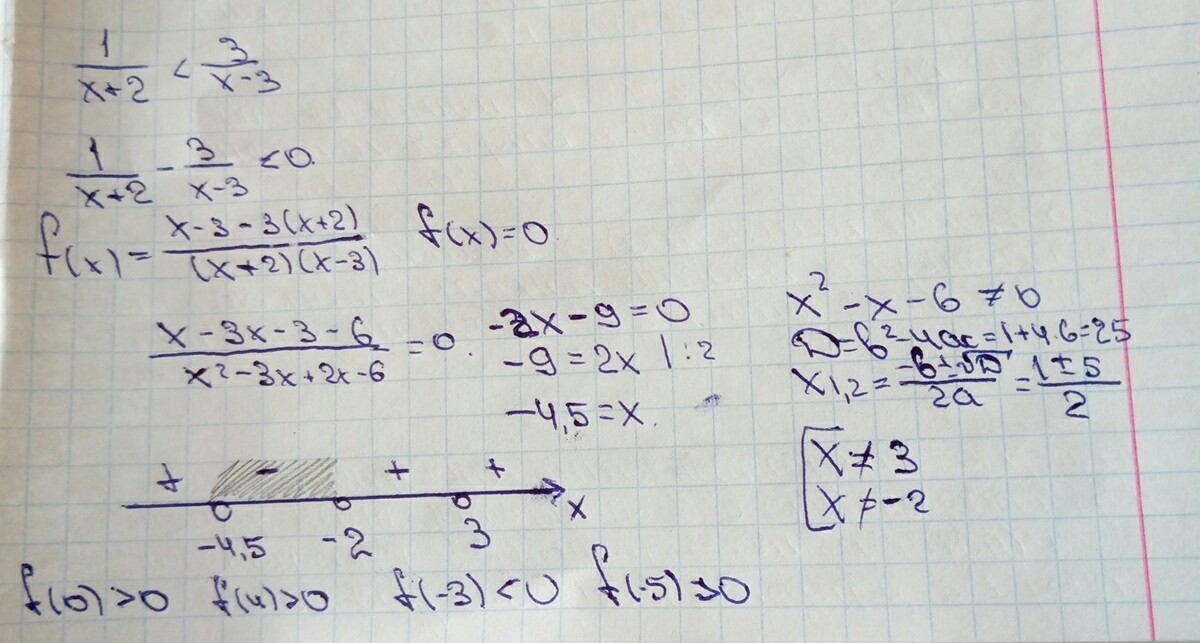 1/(x+2) < 3/(x-3)
1/(x+2) - 3/(x-3) <0.
f(x)= (x-3-3(x+2))/((x+2)(x-3)) f(x)=0.
(x-3x-3-6)/(x²-3x+2x-6) =0.
-2x-9=0
-9=2x |:2
-4,5=x.
x²-x-6≠0
D=b²-4ac=1+4·6=25
x1,2=(-b±√D)/2a=(1±5)/2
[x≠3
x≠-2
+ - + +
-4,5 -2 3 x
f(0)>0 f(4)>0 f(-3)<0 f(-5)>0